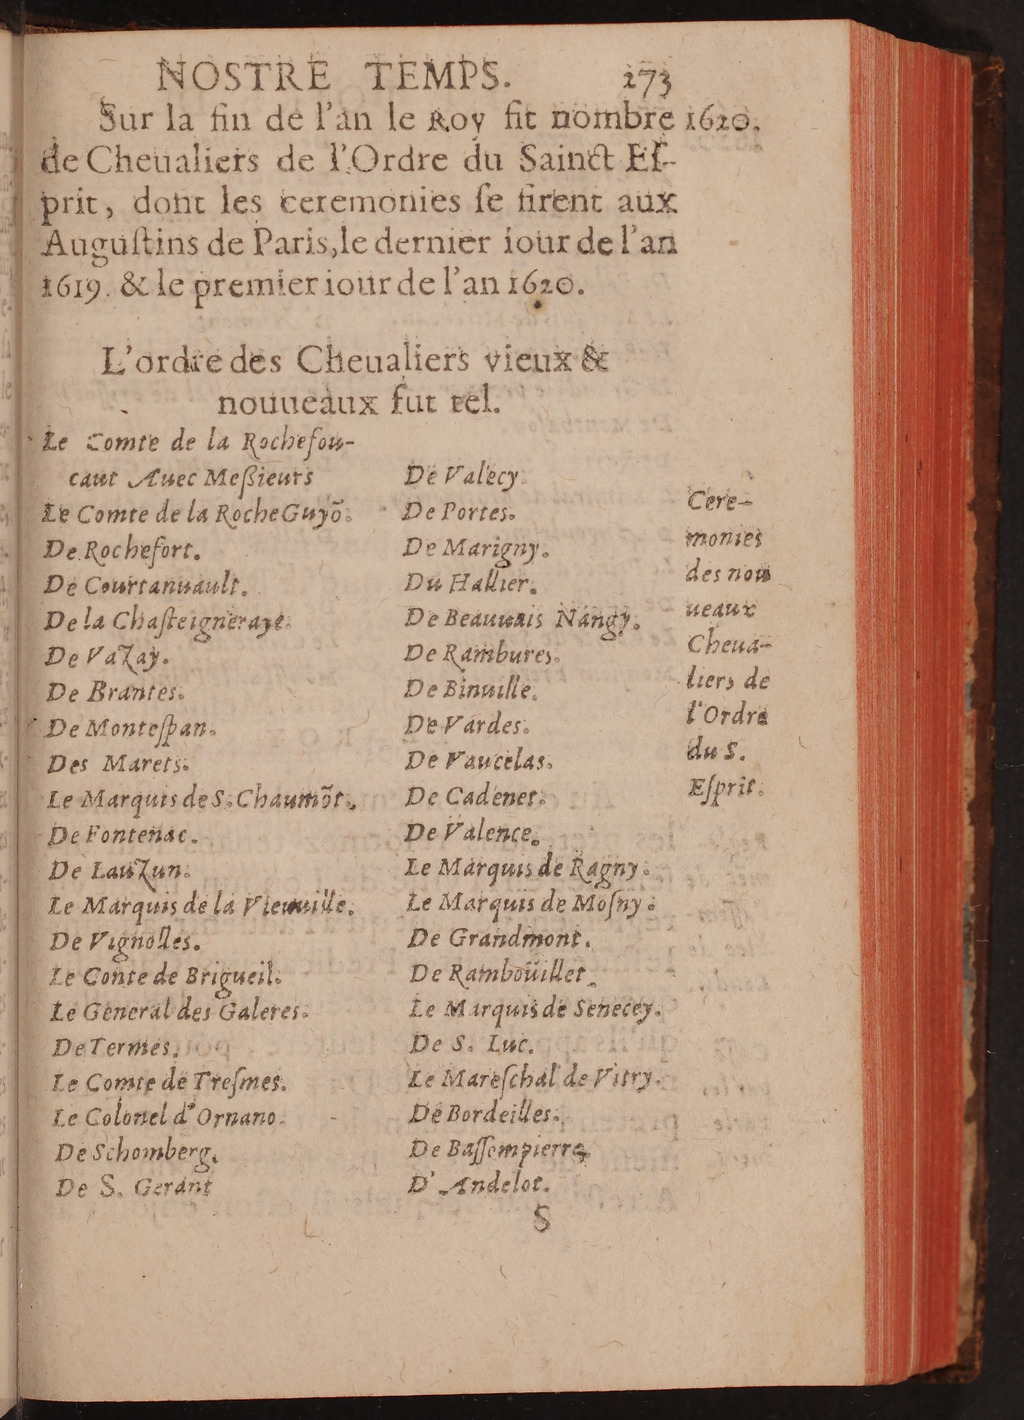 NOSTRE TEMPS. 273
Sur la fin de l'an le Roy fit nombre 1620.
de Cheualiers de l'Ordre du Sainct Eſ-
prit, dont les ceremonies ſe firent aux
Auguſtins de Paris, le dernier iour de l'an
1619. & le premier iour de l'an 1620.
L'ordre des Cheualiers vieux &
nouueaux fut tel.
Le Comte de la Rochefou-
caut Auec Meſſieurs
Le Comte de la Roche Guyõ.
De Rochefort.
De Courtanuault.
De la Chaſteigneraye.
De Vazay.
De Brantes.
De Monteſpan.
Des Marets.
Le Marquis de S. Chaumõt.
De Fontenac.
De Lauzun.
Le Marquis de la Vieuuille.
De Vignolles.
Le Conte de Brigueil.
Le General des Galeres.
De Termes.
Le Comte de Treſmes.
Le Colonel d'Ornano.
De Schomberg.
De S. Gerant
De Valecy.
De Portes.
De Marigny.
Du Hallier.
De Beauuais Nangy.
De Rambures.
De Binuille.
De Vardes.
De Vaucelas.
De Cadenet.
De Valence.
Le Marquis de Ragny.
Le Marquis de Moſny.
De Grandmont.
De Rambouillet.
Le Marquis de Senecey.
De S. Luc.
Le Mareſchal de Vitry.
De Bordeilles.
De Baſſompierre.
D'Andelot.
Cere-
monies
des nou
ueaux
Cheua-
liers de
l'Ordre
du S.
Eſprit.
S